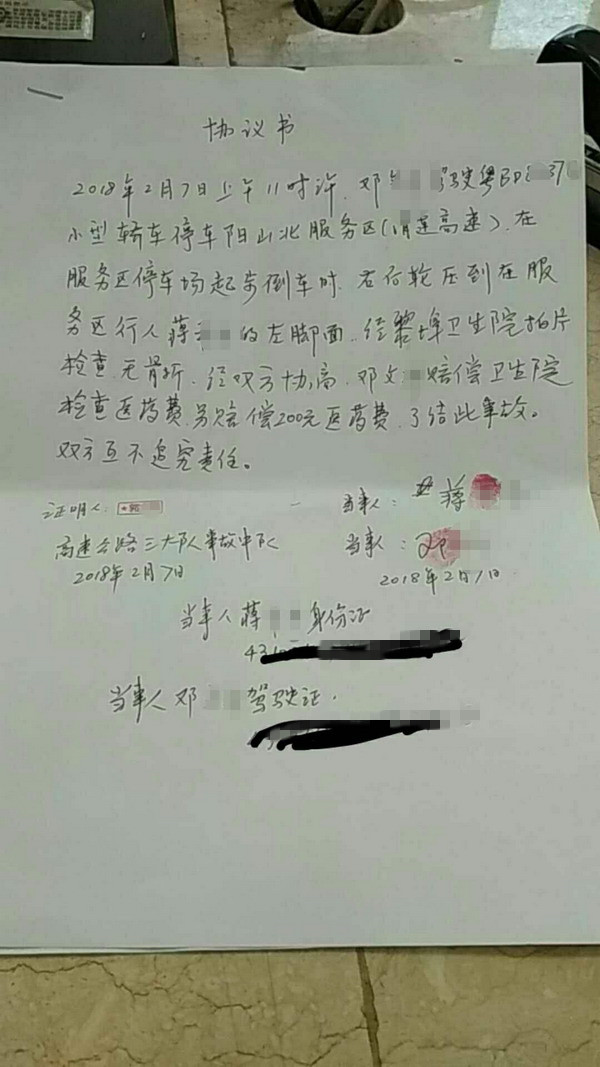 协议书
2018年2月7日上午11时许，邓 驾驶粤B
小型轿车停车阳山北服务区(清连高速)，在
服务区停车场起步倒车时，右后轮压到在服
务区行人蒋 的左脚面，经黎埠卫生院拍片
检查，无骨折，经双方协商，邓文 赔偿卫生院
检查医药费，另赔偿200元医药费，了结此事故。
双方互不追究责任。
证明人：
当事人：蒋
高速公路三大队事故中队
当事人：
2018年2月7日
2018年2月7日
当事人蒋 身份证
43
当事人邓 驾驶证.